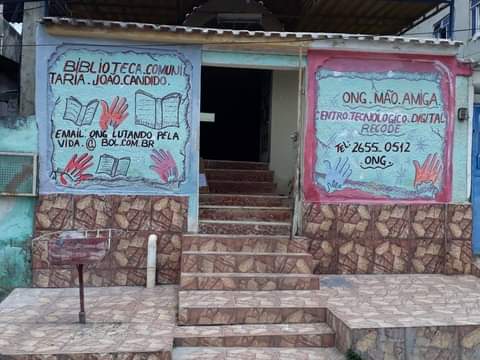 BIBLIOTECA.COMUNI
TARIA.JOAO.CANDIDO.
EMAIL. ONG LUTANDO PELA
VIDA.@ BOL.COM.BR
ONG. MÃO. AMIGA.
CENTRO.TECNOLOGICO.DIGITAL
RECODE
Tel 2655.0512
ONG.